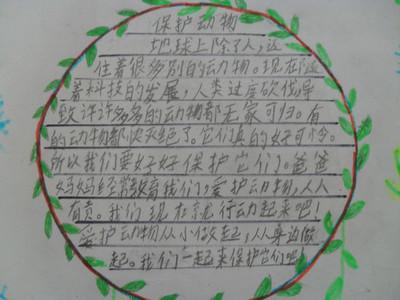 保护动物
地球上除了人,这
住着很多别的动物。现在随
着科技的发展,人类过度砍伐,导
致许许多多的动物都无家可归。有
的动物都快灭绝了。它们真的好可怜。
所以我们要好好保护它们。爸爸
妈妈经常教育我们,爱护动物,人人
有责。我们现在就行动起来吧!
爱护动物从小做起,从身边做
起。我们一起来保护它们吧